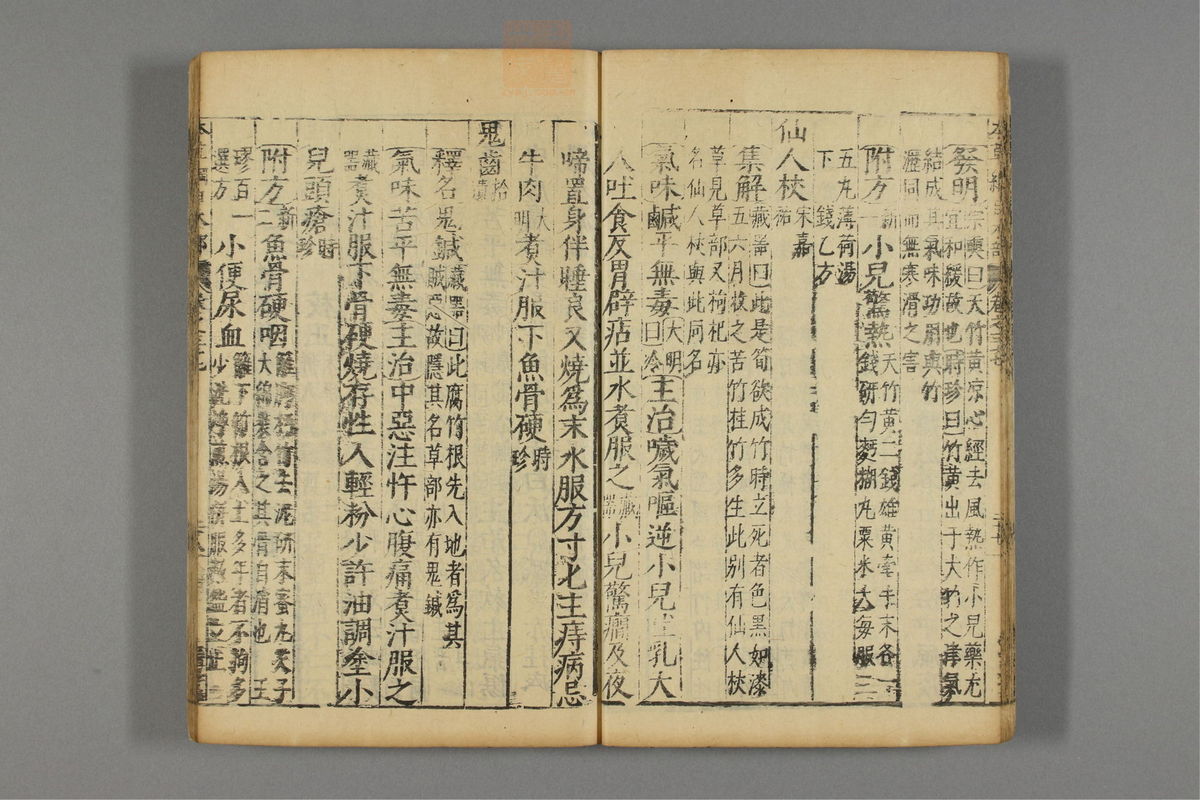 發明宗奭曰天竹黃凉心經去風熱作小兒藥尤
宜和緩故也時珍曰竹黃出于大竹之津氣
結成其氣味功用與竹
瀝同而無寒滑之害
附方一新小兒驚熱天竹黃二錢雄黃牽牛末各
一錢研勻麪糊丸粟米大每服三
五丸薄荷湯
下錢乙方
仙人杖宋嘉祐
集解藏器曰此是筍欲成竹時立死者色黑如漆
五六月收之苦竹桂竹多生此别有仙人杖
草見草部又枸杞亦
名仙人杖與此同名
氣味鹹平無毒大明曰冷主治噦氣嘔逆小兒吐乳大
人吐食反胃辟痁並水煮服之藏器小兒驚癇及夜
啼置身伴睡良又燒爲末水服方寸匕主痔病忌
牛肉大明煮汁服下魚骨硬時珍
鬼齒拾遺
釋名鬼鍼藏器曰此腐竹根先入地者爲其
賊惡故隱其名草部亦有鬼鍼
氣味苦平無毒主治中惡注忤心腹痛煮汁服之
藏器煮汁服下骨硬燒存性入輕粉少許油調塗小
兒頭瘡時珍
附方二新魚骨硬咽籬脚朽竹去泥研末蜜丸芡子
大綿裹含之其骨自消也王
璆百一
選方小便尿血籬下竹根入土多年者不拘多
少洗淨煎湯